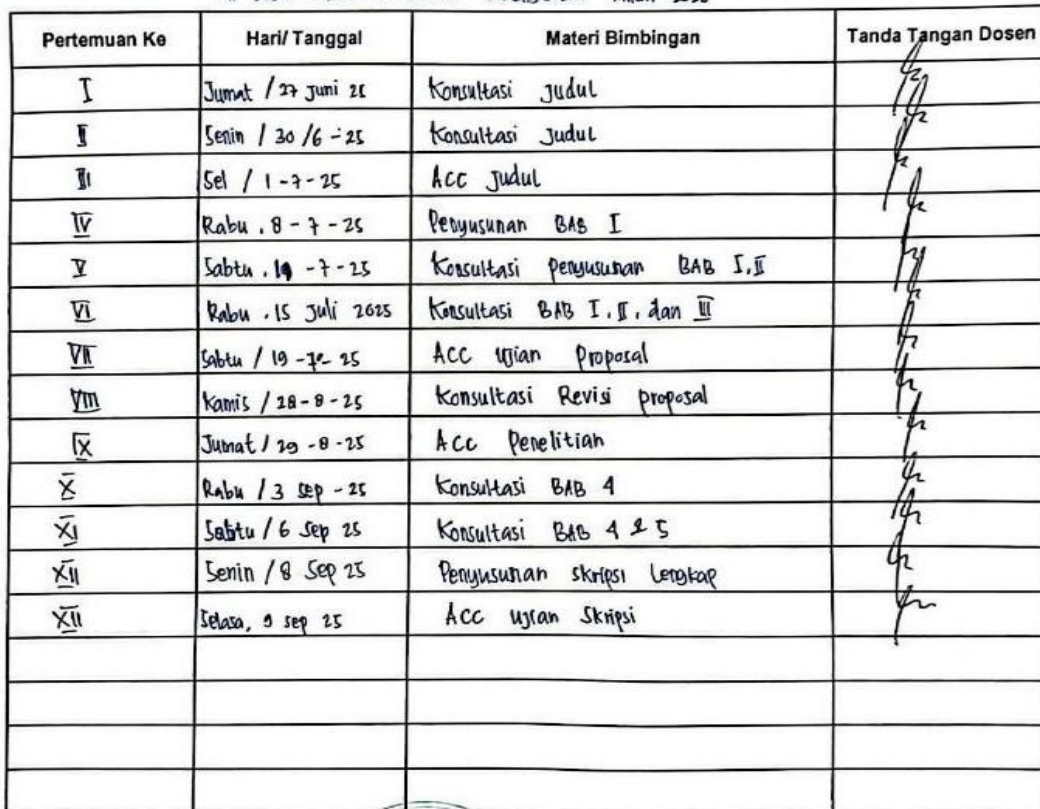 Pertemuan Ke Hari/ Tanggal Materi Bimbingan Tanda Tangan Dosen
I Jumat / 27 Juni 25 Konsultasi Judul
II Senin / 30 /6 - 25 Konsultasi Judul
III Sel / 1 - 7 - 25 Acc Judul
IV Rabu . 8 - 7 - 25 Penyusunan BAB I
V Sabtu . - 7 - 25 Konsultasi penyusunan BAB I, II
VI Rabu . 15 Juli 2025 Konsultasi BAB I, II, dan III
VII Sabtu / 19 - 7 - 25 ACC ujian Proposal
VIII Kamis / 28 - 8 - 25 Konsultasi Revisi proposal
IX Jumat / 29 - 8 - 25 Acc Penelitian
X Rabu / 3 Sep - 25 Konsultasi BAB 4
XI Sabtu / 6 Sep 25 Konsultasi BAB 4 & 5
XII Senin / 8 Sep 25 Penyusunan skripsi Lengkap
XIII Selasa, 9 sep 25 ACC ujian Skripsi